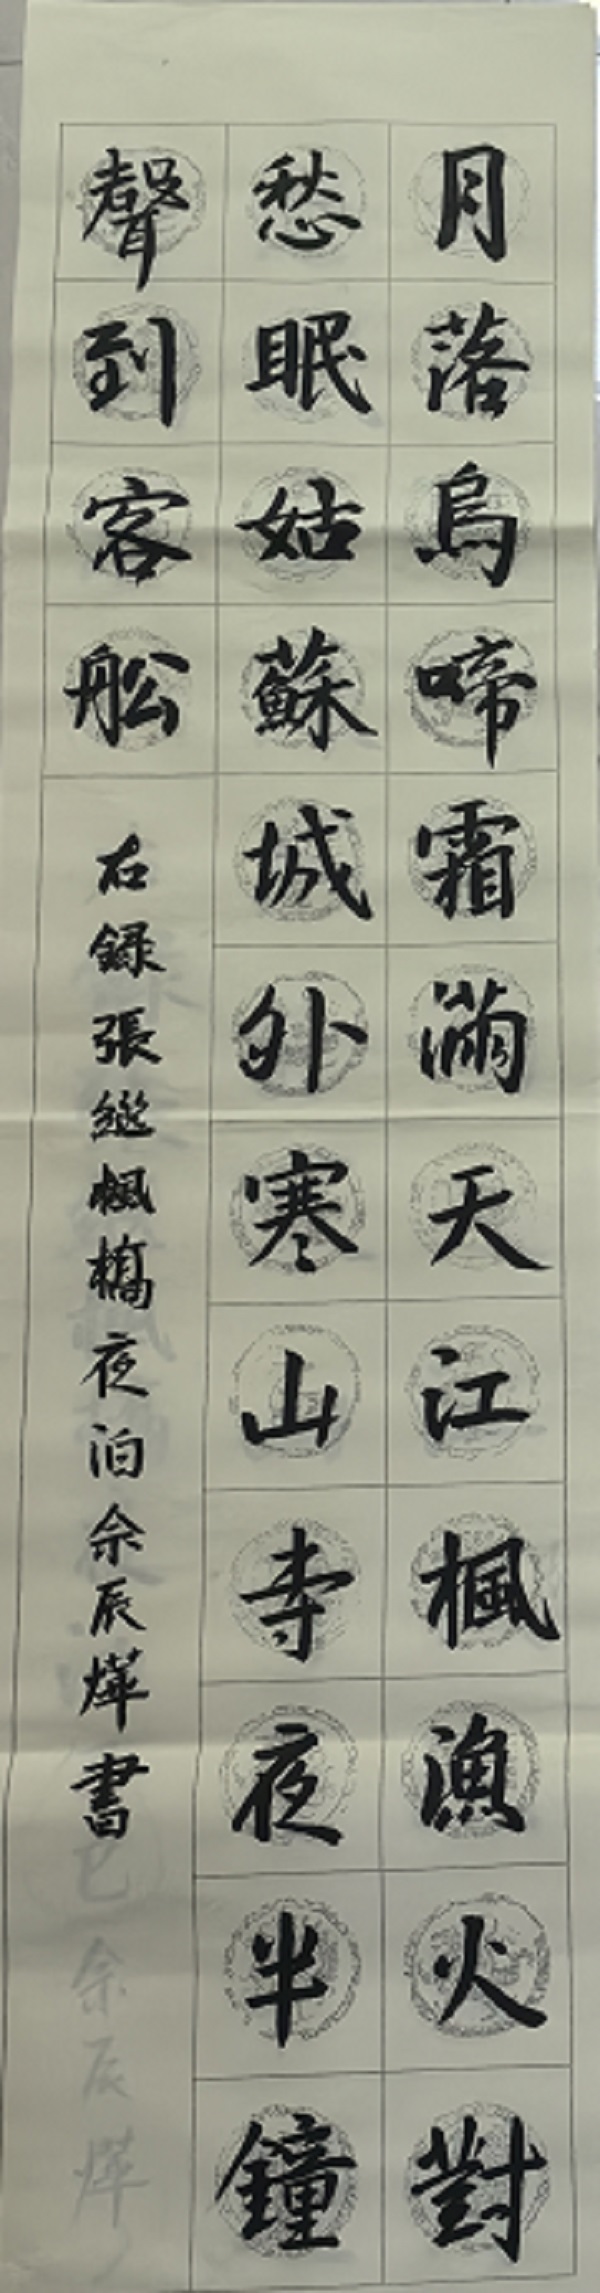 月落烏啼霜滿天江楓漁火對
愁眠姑蘇城外寒山寺夜半鐘
聲到客舩
右録張繼楓橋夜泊余辰燁書